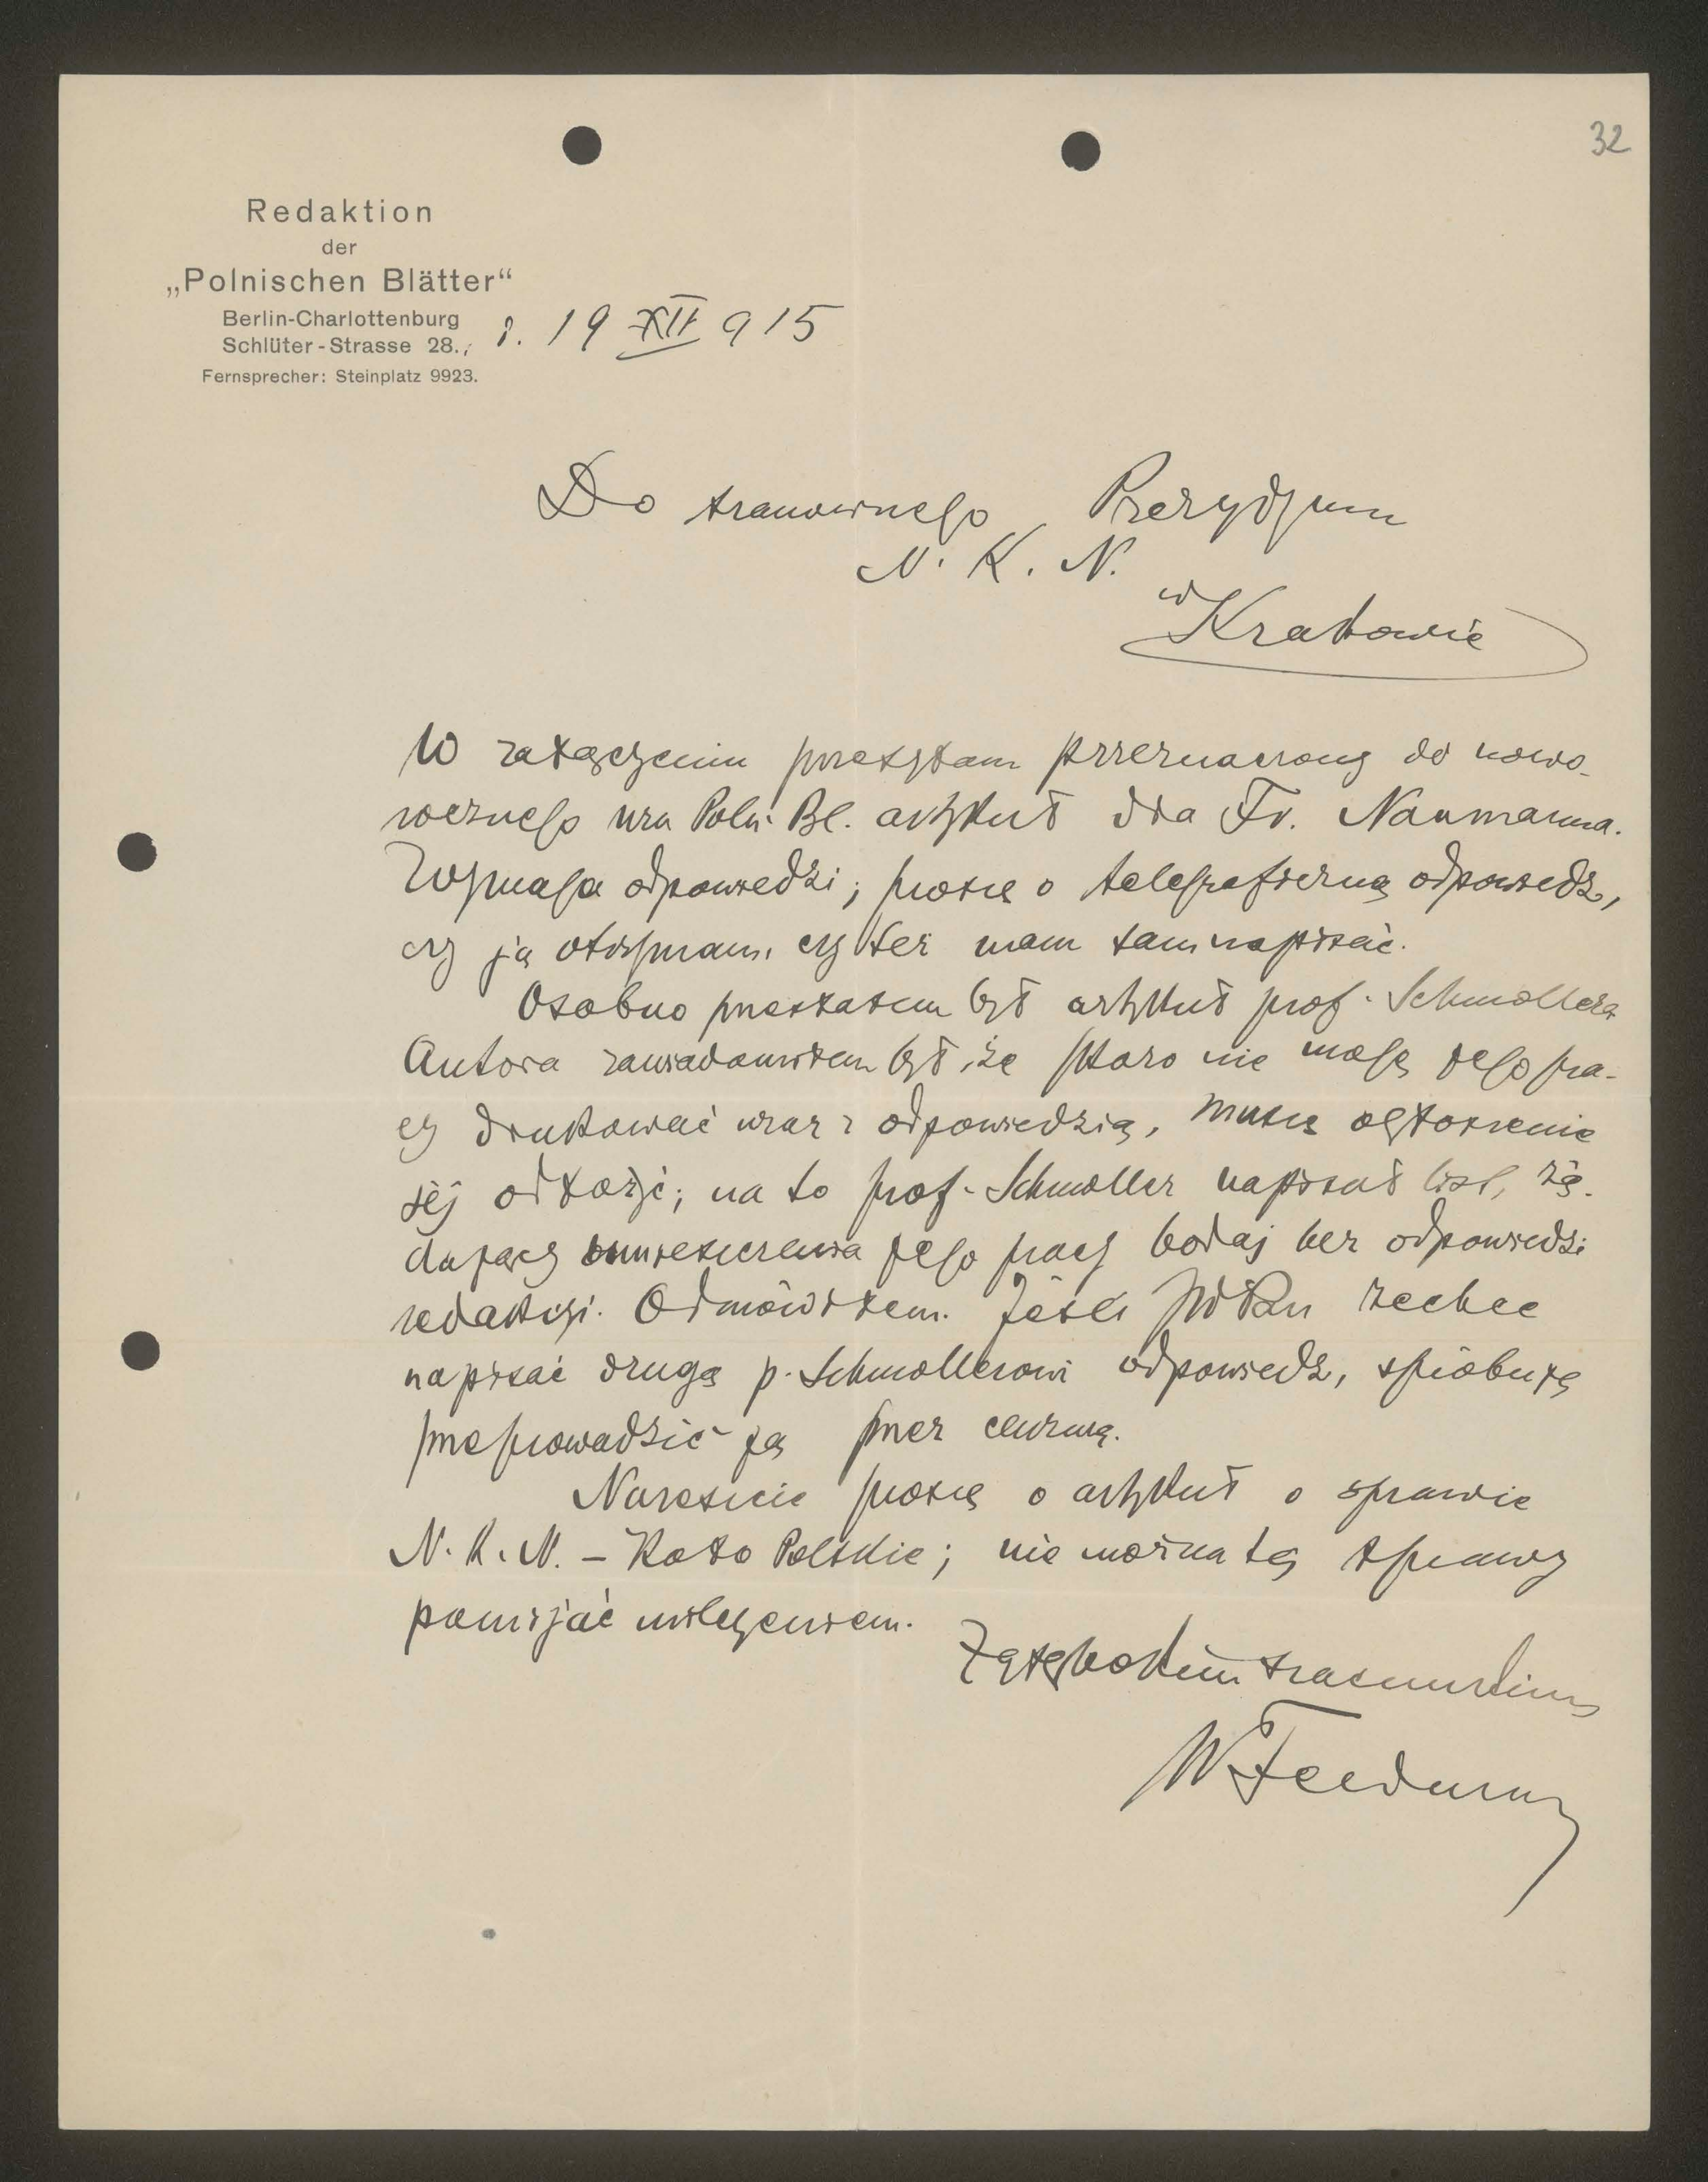 32
Redaktion
der
„Polnischen Blätter“
Berlin-Charlottenburg
Schlüter-Strasse 28.,
d. 19 XII 915
Fernsprecher: Steinplatz 9923.
Do szanownego Prezydjum
N. K. N.
w Krakowie
W załączeniu przesyłam przeznaczony do nowo-
rocznego nru Poln. Bl. artykuł dra Fr. Naumanna.
Wymaga odpowiedzi; proszę o telegraficzną odpowiedź,
czy ją otrzymam, czy też mam sam napisać.
Osobno przesłałem był artykuł prof. Schmollera
Autora zawiadomiłem był, że skoro nie mogę jego pra-
cy drukować wraz z odpowiedzią, muszę ogłoszenie
jej odłożyć; na to prof. Schmoller napisał list, żą-
dający umieszczenia jego pracy bodaj bez odpowiedzi
redakcyi. Odmówiłem. Jeśli NKN zechce
napisać drugą p. Schmollerowi odpowiedź, spróbuję
przeprowadzić ją przez cenzurę.
Nareszcie proszę o artykuł o sprawie
N. K. N. – Koło Polskie; nie można tej sprawy
pomijać milczeniem.
Z głębokim szacunkiem
WFeldman